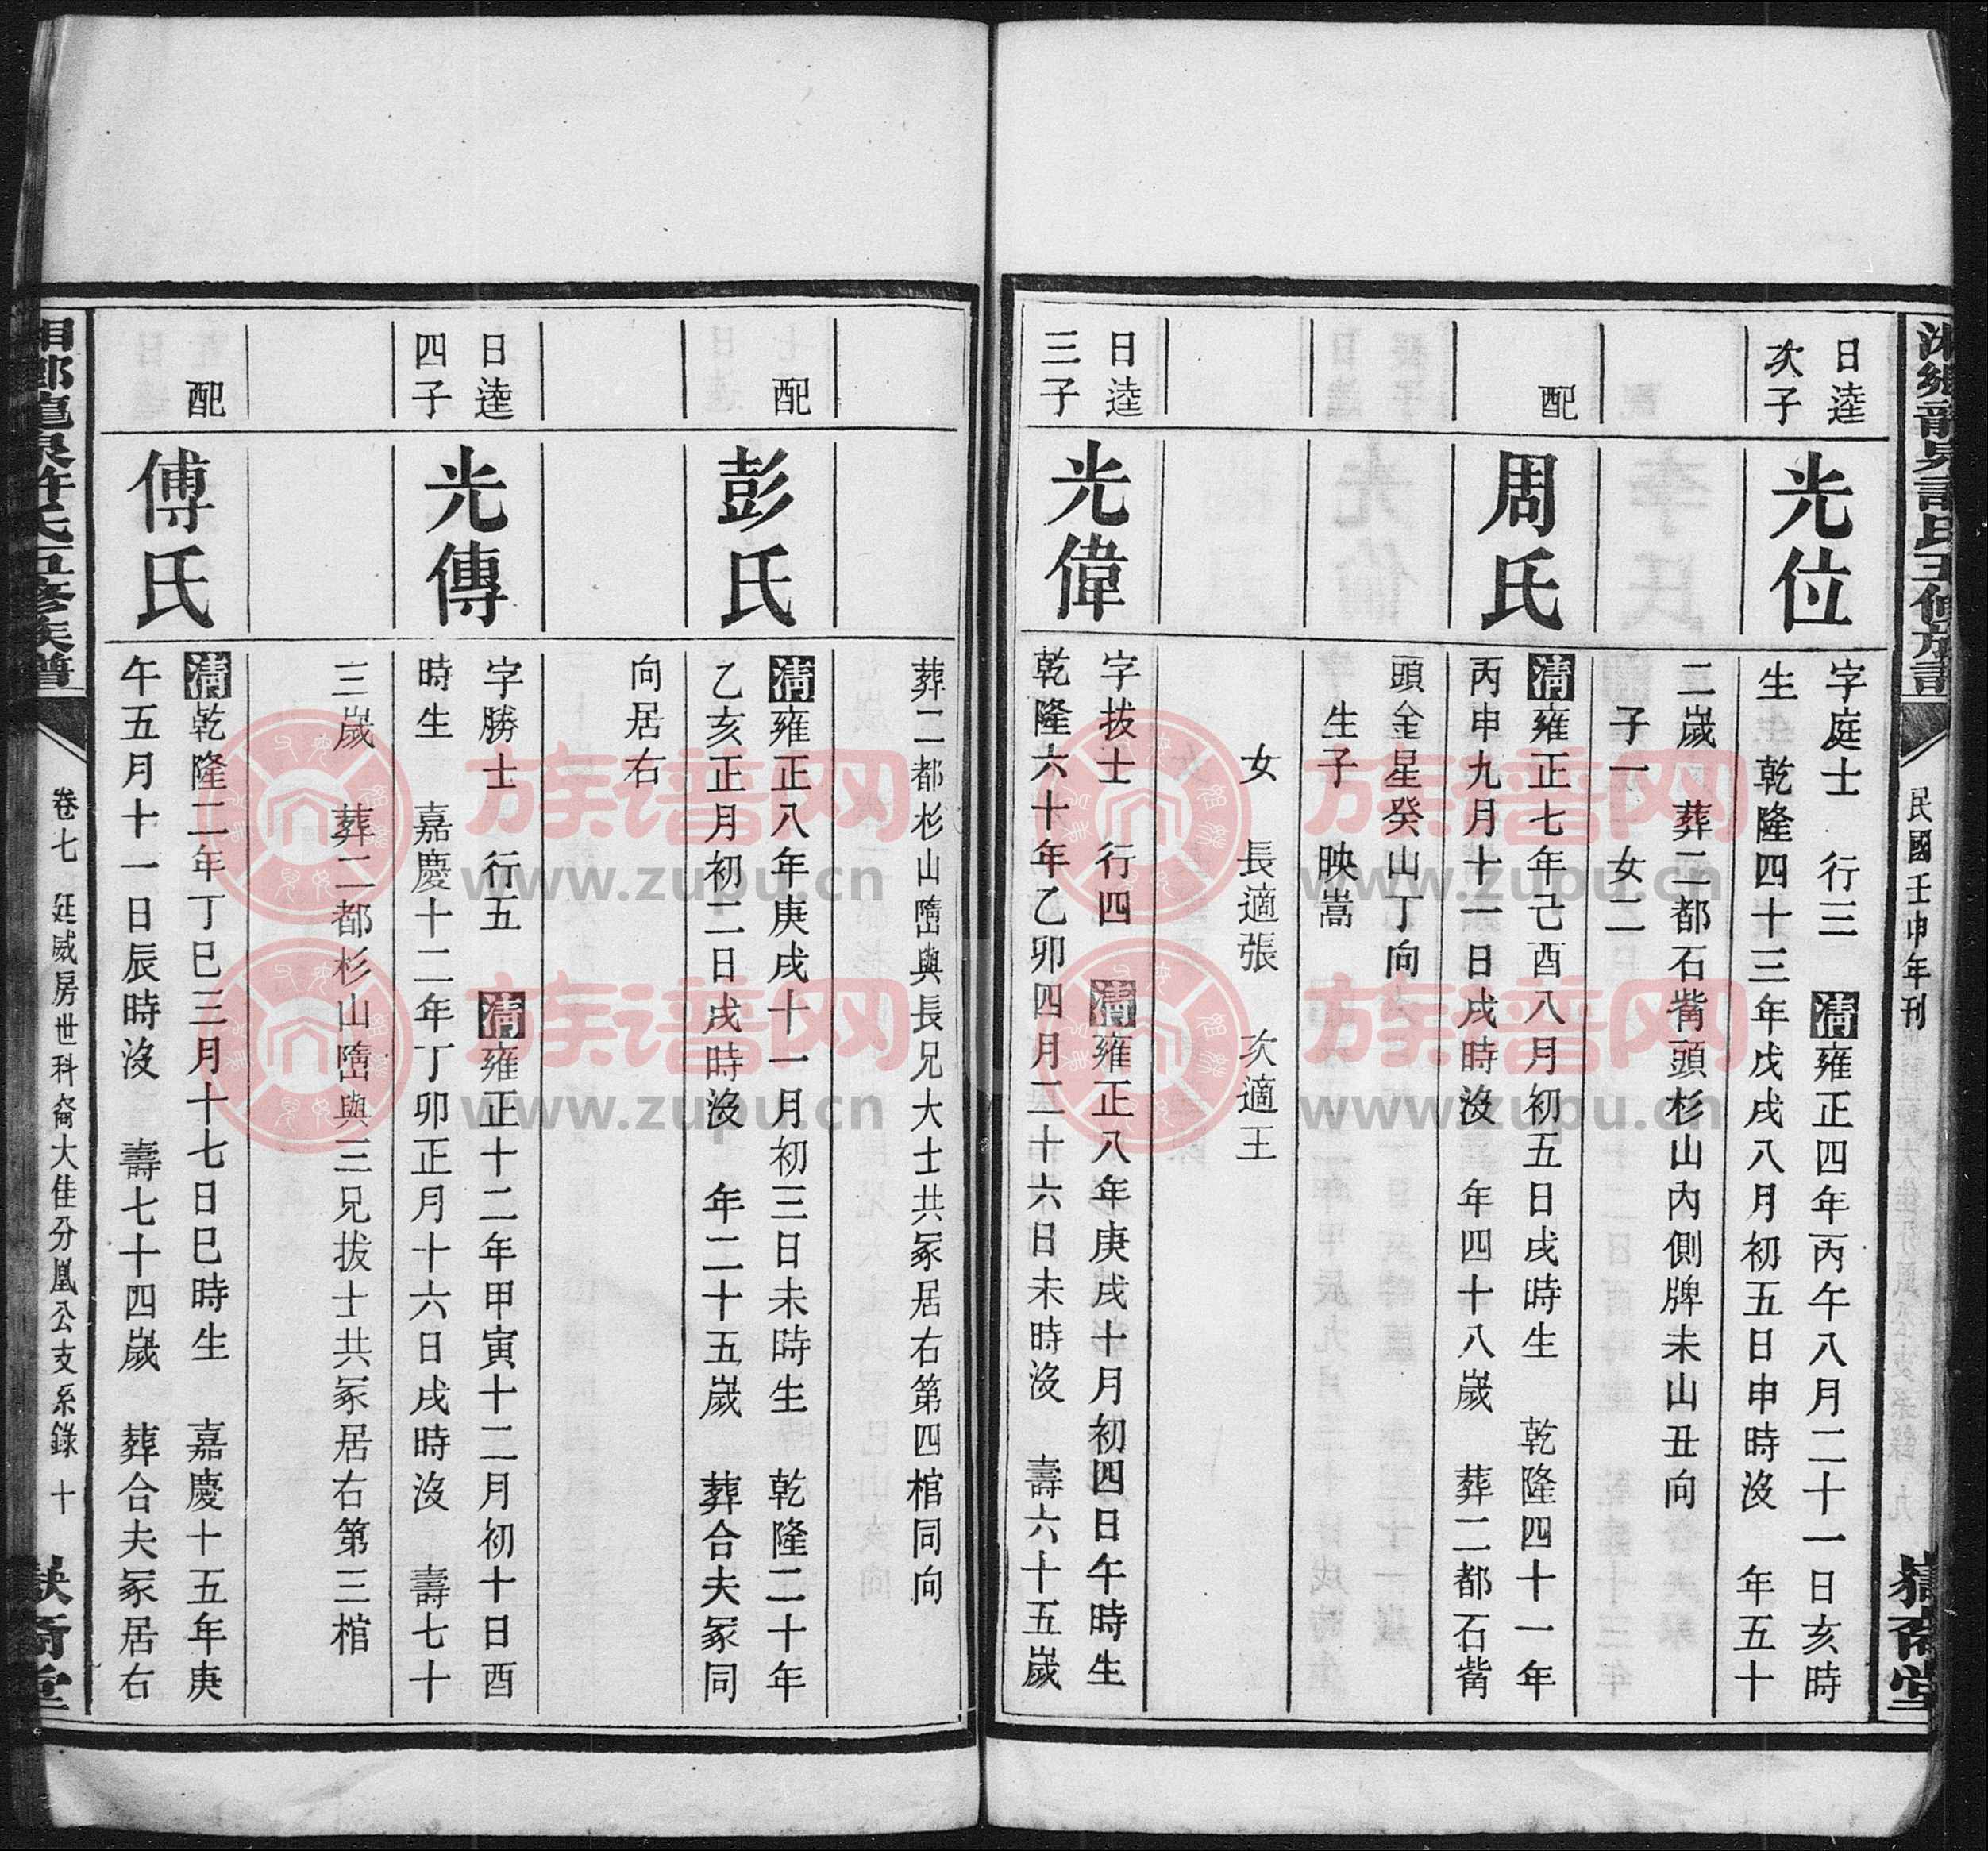 民國壬申年刊
日逵
次子
光位
字庭士 行三 清雍正四年丙午八月二十一日亥時
生 乾隆四十三年戊戌八月初五日申時沒 年五十
二歲 葬二都石觜頭杉山內側牌未山丑向
子一 女二
配
周氏
清雍正七年己酉八月初五日戌時生 乾隆四十一年
丙申九月十一日戌時沒 年四十八歲 葬二都石觜
頭金星癸山丁向
生子 映嵩
女 長適張 次適王
日逵
三子
光偉
字拔士 行四 清雍正八年庚戌十月初四日午時生
乾隆六十年乙卯四月二十六日未時沒 壽六十五歲
葬二都杉山㙐與長兄大士共冢居右第四棺同向
配
彭氏
清雍正八年庚戌十一月初三日未時生 乾隆二十年
乙亥正月初二日戌時沒 年二十五歲 葬合夫冢同
向居右
日逵
四子
光傳
字勝士 行五 清雍正十二年甲寅十二月初十日酉
時生 嘉慶十二年丁卯正月十六日戌時沒 壽七十
三歲 葬二都杉山㙐與三兄拔士共冢居右第三棺
配
傅氏
清乾隆二年丁巳三月十七日巳時生 嘉慶十五年庚
午五月十一日辰時沒 壽七十四歲 葬合夫冢居右
龍泉許氏五修族譜
卷七 廷威房世科裔大佳分鳳公支系錄 十
族谱网
www.zupu.cn
族谱网
www.zupu.cn
族谱网
www.zupu.cn
族谱网
www.zupu.cn